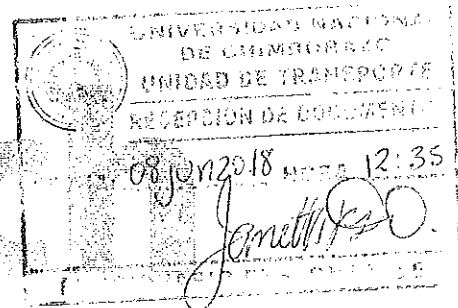 UNIVERSIDAD NACIONAL
DE CHIMBORAZO
UNIDAD DE TRANSPORTE
RECEPCIÓN DE DOCUMENTO
08 jun 2018 HORA 12:35